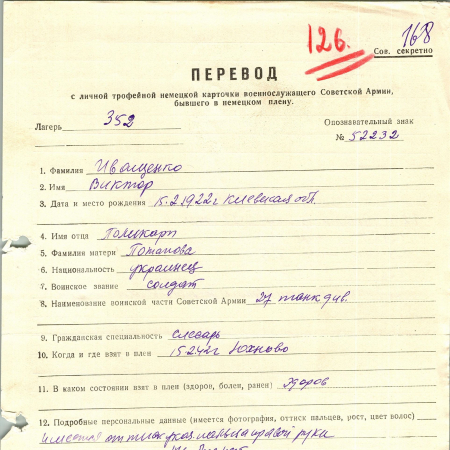 126.
168
Сов. секретно
ПЕРЕВОД
с личной трофейной немецкой карточки военнослужащего Советской Армии,
бывшего в немецком плену.
Лагерь 352
Опознавательный знак
№ 52232
1. Фамилия Иващенко
2. Имя Виктор
3. Дата и место рождения 15.2.1922г Киевская обл.
4. Имя отца Поликарп
5. Фамилия матери Потапова
6. Национальность украинец
7. Воинское звание солдат
8. Наименование воинской части Советской Армии 27 танк див.
9. Гражданская специальность слесарь
10. Когда и где взят в плен 15.2.42г Юхново
11. В каком состоянии взят в плен (здоров, болен, ранен) Здоров
12. Подробные персональные данные (имеется фотография, оттиск пальцев, рост, цвет волос)
Имеется оттиск указ. пальца правой руки